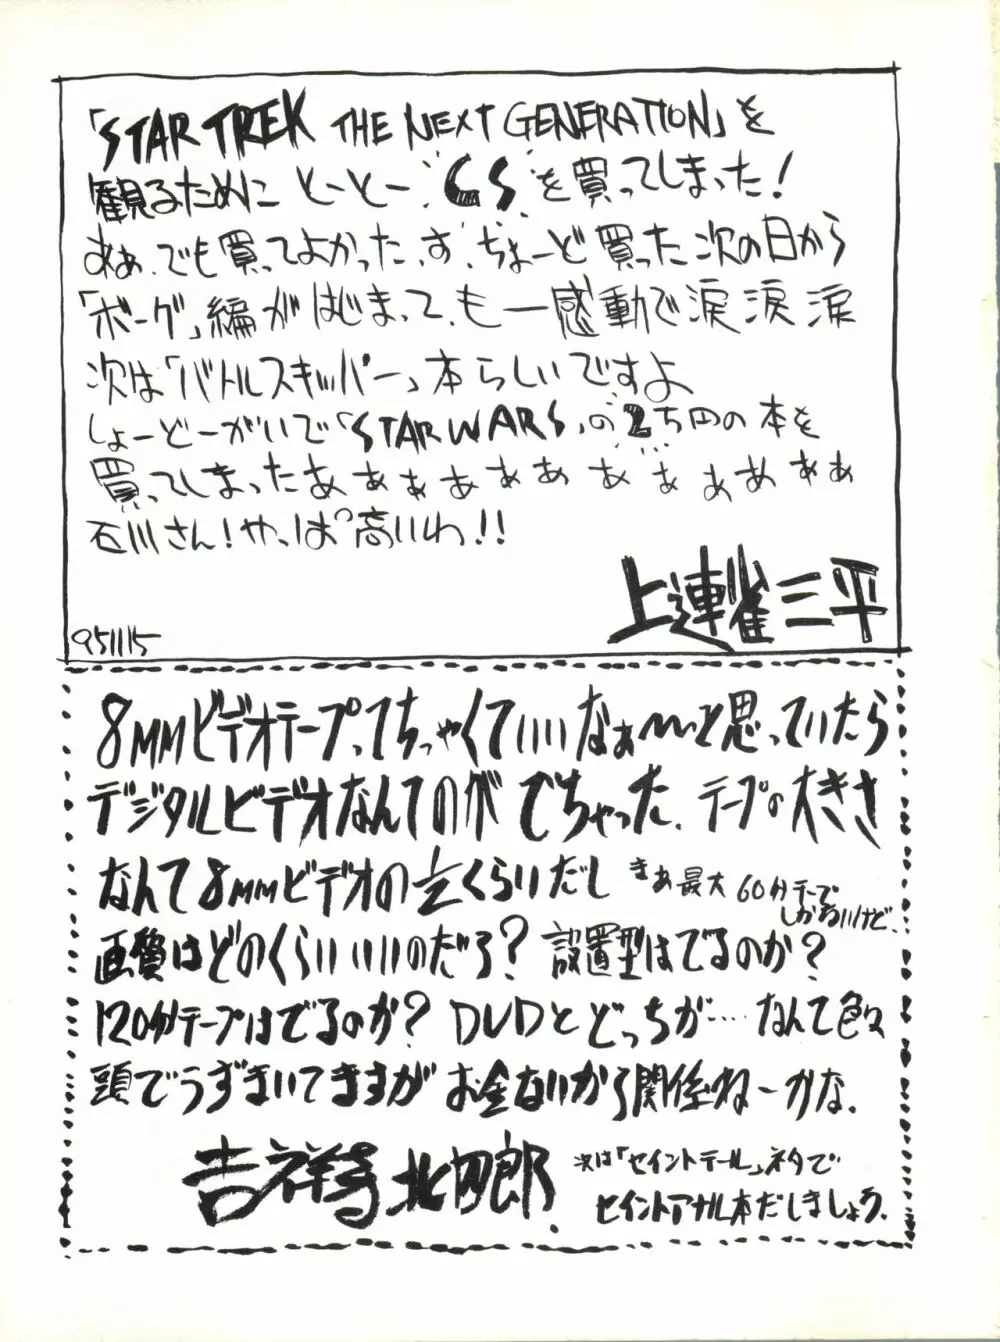 「STAR TREK THE NEXT GENERATION」を
観るために とーとー"CS"を買ってしまった！
あぁ、でも買ってよかったっす、ちょーど買った次の日から
「ボーグ」編がはじまって、も一感動で涙涙涙
次は「バトルスキッパー」本らしいですよ
しょーどーがいで「STAR WARS」の2ち円の本を
買ってしまったあぁぁぁぁぁぁぁぁぁぁ
石川さん！やっぱ高いわ!!
上連雀三平
951115
8MMビデオテープってちっちゃくていいなぁ〜と思っていたら
デジタルビデオなんてのがでちゃった、テープの大きさ
なんて8MMビデオの½くらいだし まあ最大60分テープ
しかないけど、
画質はどのくらいいいのだろ？設置型はでるのか？
120分テープはでるのか？DVDとどっちが……なんて色々
頭でうずまいてますがお金ないから関係ねーかな、
吉祥寺北四郎、
次は「セイントテール」ネタで
セイントアナル本だしましょう、